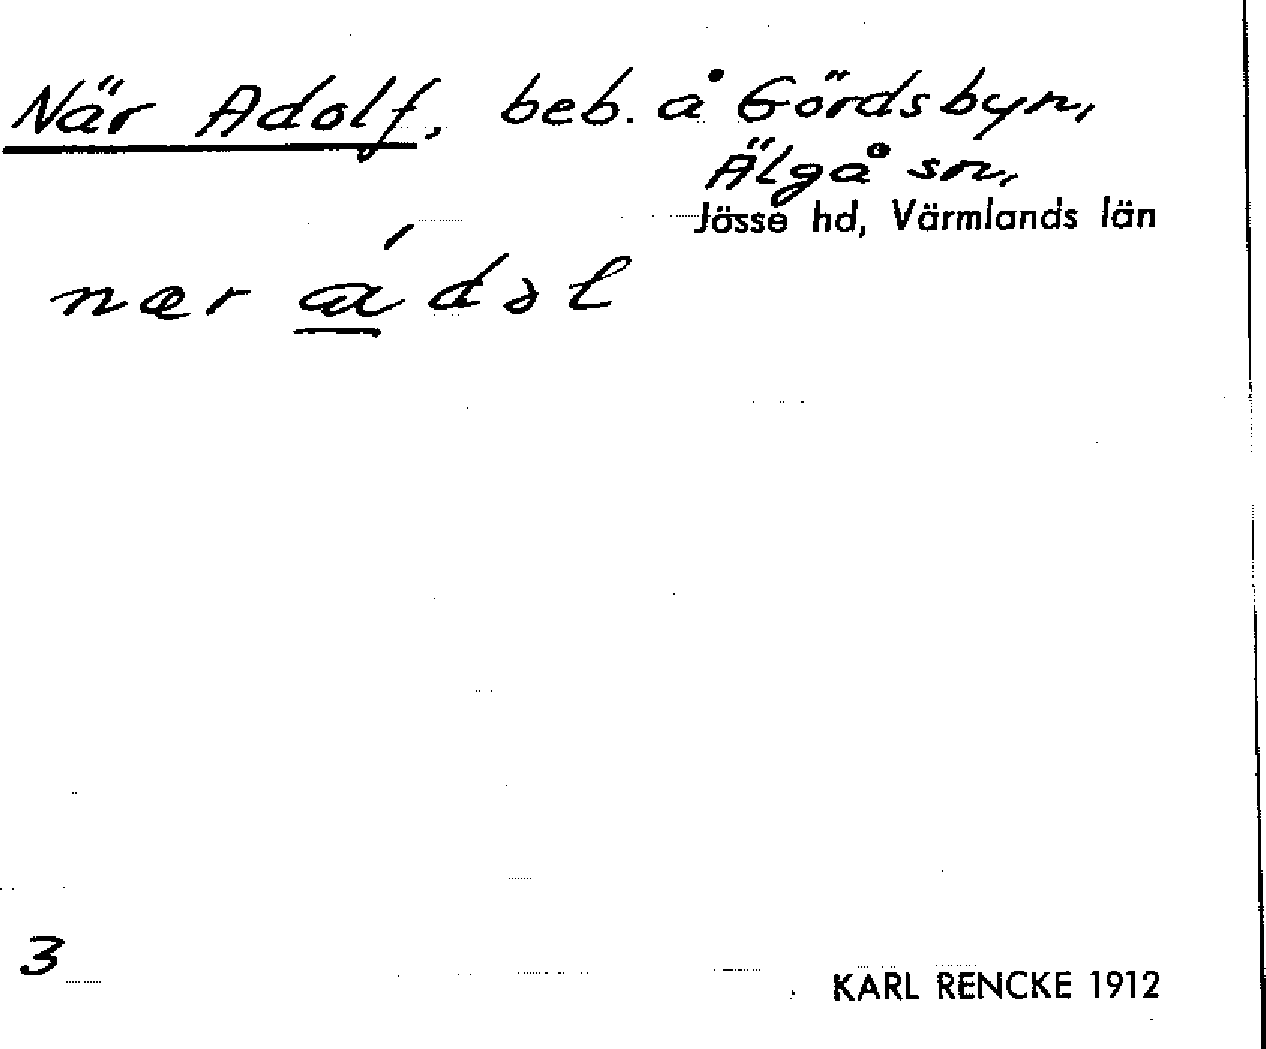 När Adolf, beb. å Gördsbyn,
Älgå sn,
Jösse hd, Värmlands län
nær ádəl
3
KARL RENCKE 1912